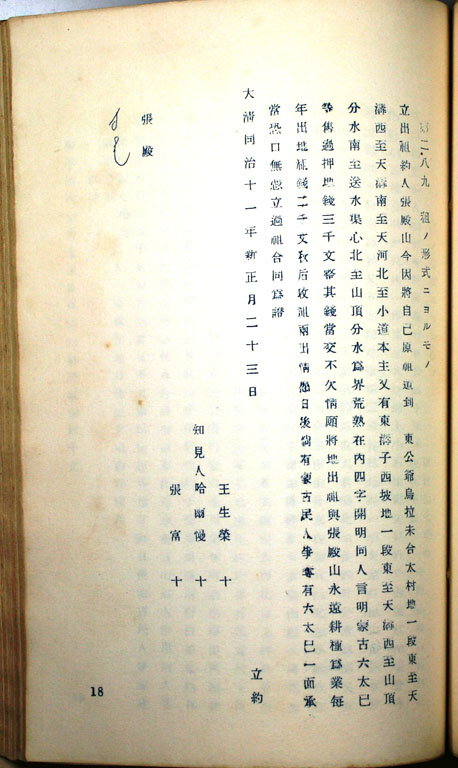 二・八九 租ノ形式ニヨルモノ
立出租約人張殿山今因將自己原租到 東公爺烏拉未台太村地一段東至天
溝西至天溝南至天河北至小道本主又有東溝子西坡地一段東至天溝西至山頂
分水南至送水渠心北至山頂分水爲界荒熟在內四字開明同人言明蒙古六太已
等舊過押地錢三千文齊其錢當交不欠情願將地出租與張殿山永遠耕種爲業每
年出地租錢二千文秋后收租兩出情愿日後倘有蒙古民人爭奪有六太巳一面承
當恐口無憑立過租合同爲證
大淸同治十一年新正月二十三日 立約
王生榮 十
知見人哈爾慢 十
張富 十
張殿
18